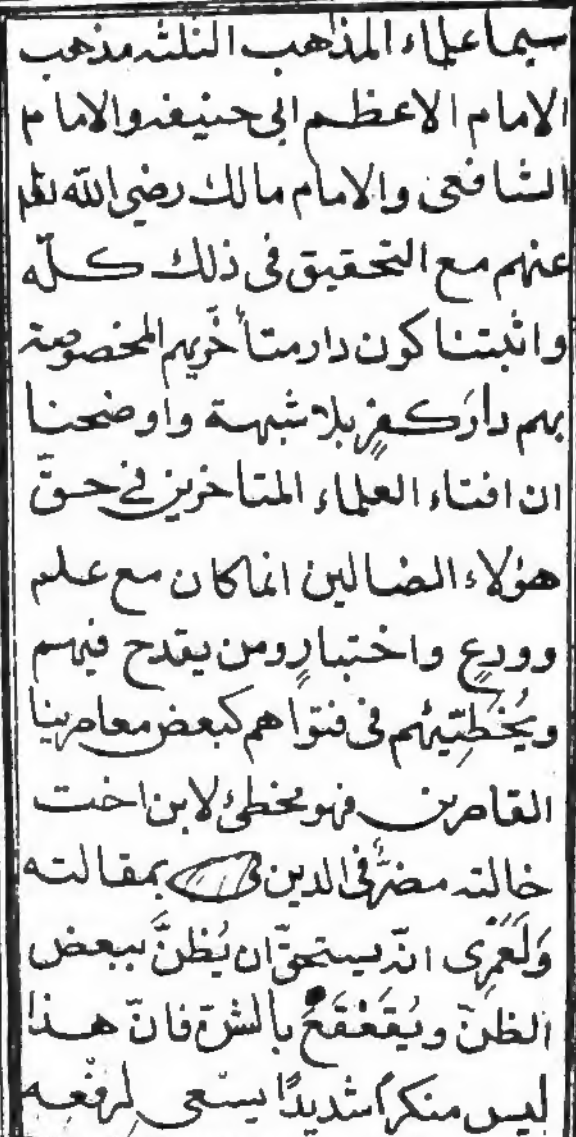 سيما علماء المذاهب الثلثه مذهب
الامام الاعظم ابى حنيفه والامام
الشافعى والامام مالك رضى الله تعالى
عنهم مع التحقيق فى ذلك كلّه
واثبتنا كون دار متأخّريهم المخصوصة
بهم دارَ كفرٍ بلا شبهة واوضحنا
ان افتاء العلماء المتأخرين فى حقّ
هؤلاء الضالين انما كان مع علم
وورعٍ واختبارٍ ومن يقدح فيهم
ويُخَطِّئهُم فى فتواهم كبعض معاصرينا
القاصرين فهو مخطئ لابن اخت
خالته مضرٌّ فى الدين بمقالته
وَلَعَمْرِى انّه يستحقّ ان يُظَنَّ ببعض
الظنّ ويُقَعْقَعُ بالشرّ فانّ هذا
ليس منكراً شديدًا يسعى لِرفْعِه